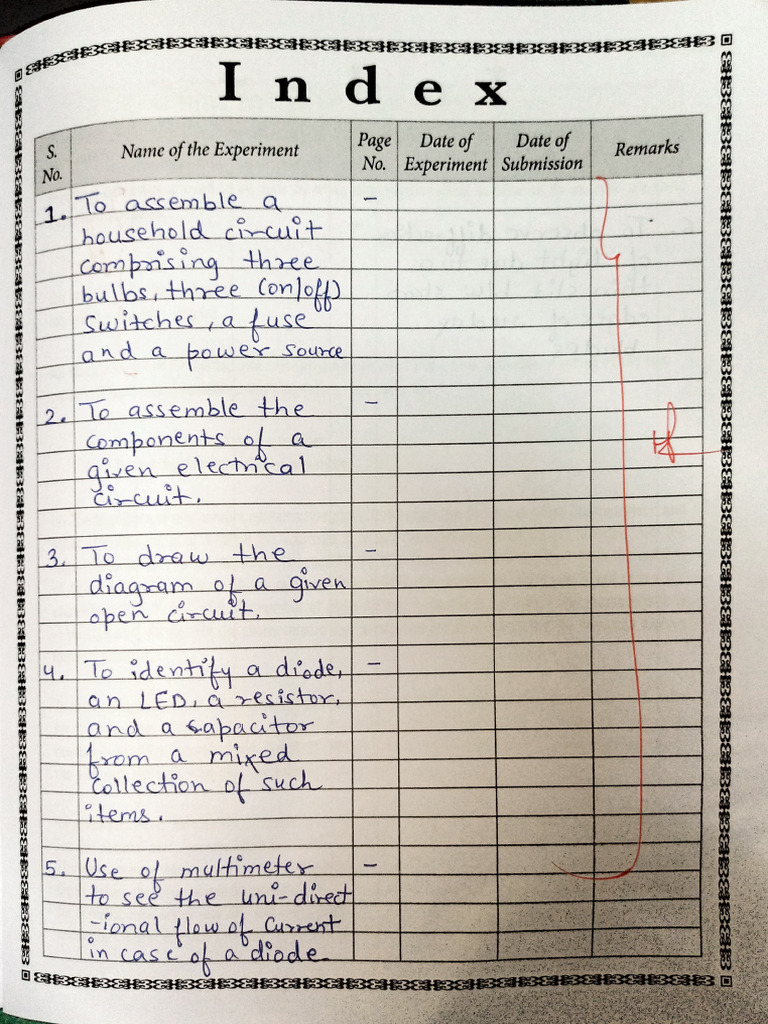 Index
S. No. Name of the Experiment Page No. Date of Experiment Date of Submission Remarks
1. To assemble a –
household circuit
comprising three
bulbs, three (on/off)
switches, a fuse
and a power source
2. To assemble the –
components of a
given electrical
circuit.
3. To draw the –
diagram of a given
open circuit.
4. To identify a diode, –
an LED, a resistor,
and a capacitor
from a mixed
collection of such
items.
5. Use of multimeter –
to see the uni-direct
-ional flow of current
in case of a diode.